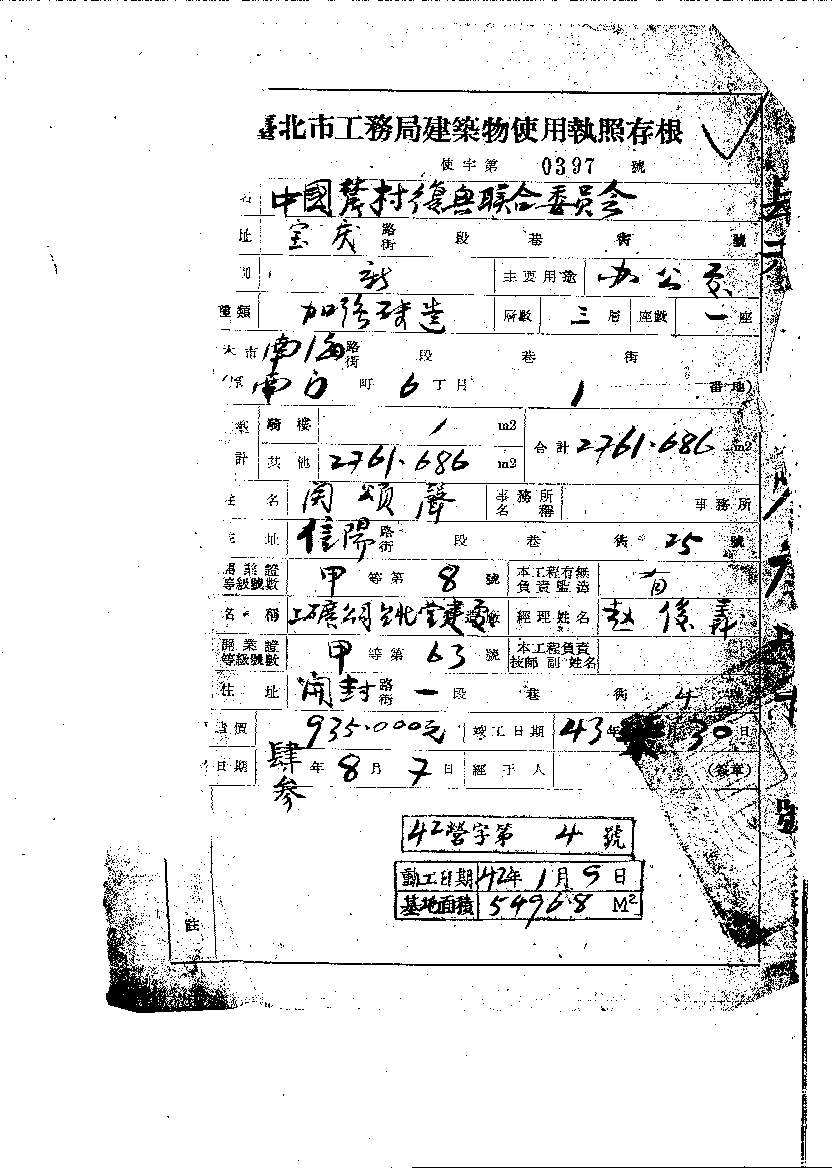 臺北市工務局建築物使用執照存根
使字第 0397 號
名 中國農村復興聯合委員会
址 宝庆 路街 段 巷 衖 號
新 主要用途 办公室
種類 加強磚造 层數 三層 座數 一座
市 南海 路街 段 巷 衖
南门町 6 丁目 1 番地)
騎樓 / m2
計 其他 2761.686 m2 合計 2761.686 m2
姓名 関頌聲 事務所名稱 事務所
住址 信陽 路街 段 巷 衖 25 號
開業證等級號數 甲等第 8 號 本工程有無負責監造 有
名稱 工矿公司台北营建處 經理姓名 赵俊義
開業證等級號數 甲等第 63 號 本工程負責技師副姓名
住址 開封 路街 一段 巷 衖 4
價 935.000元 竣工日期 43年 30日
日期 肆參年 8月 7日 經手人 (簽章)
42營字第 4 號
動工日期 42年 1月 9日
基地面積 54968 M²
註